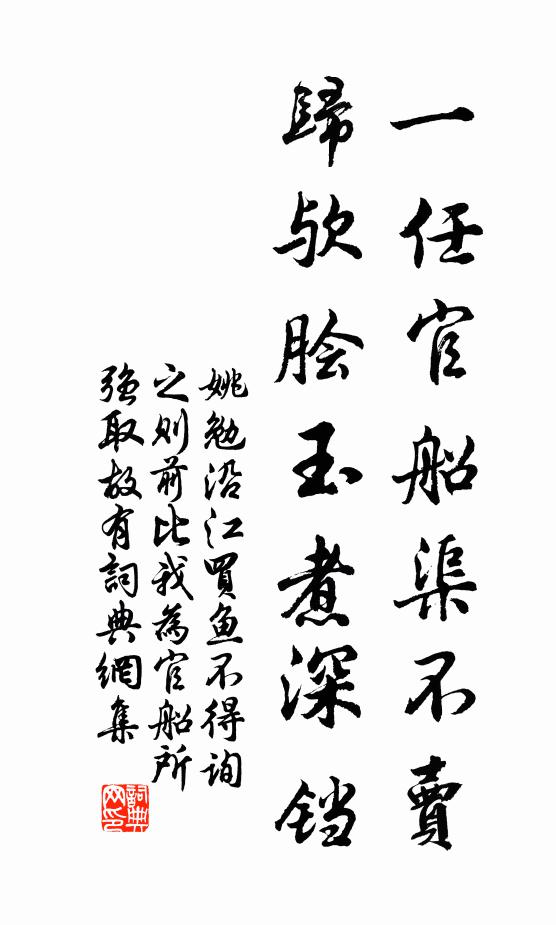 一任官船渠不賣
歸欤脍玉煮深铛
姚勉沿江買魚不得詢
之則前比我為官船所
強取故有詞典網集
詞典网印